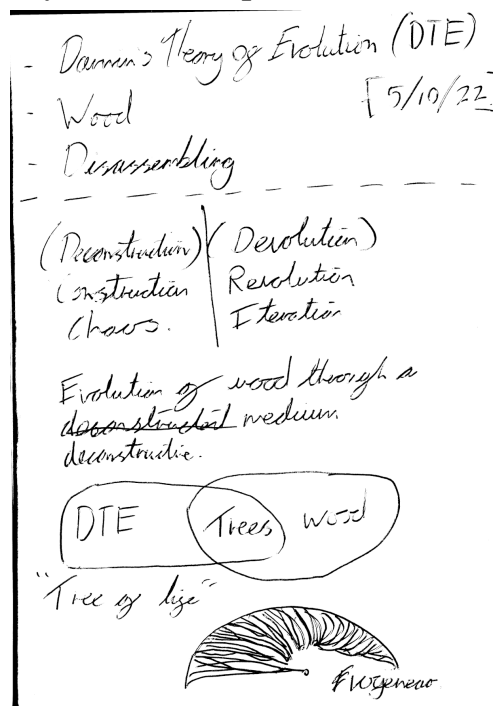 - Darwin's Theory of Evolution (DTE)
[5/10/22]
- Wood
- Disassembling
(Deconstruction) (Devolution)
Construction Revolution
Chaos. Iteration
Evolution of wood through a
deconstructed medium.
deconstructive.
DTE Trees Wood
"Tree of life"